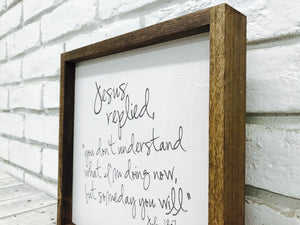 Jesus
replied,
"you don't understand
what I'm doing now,
but someday you will"